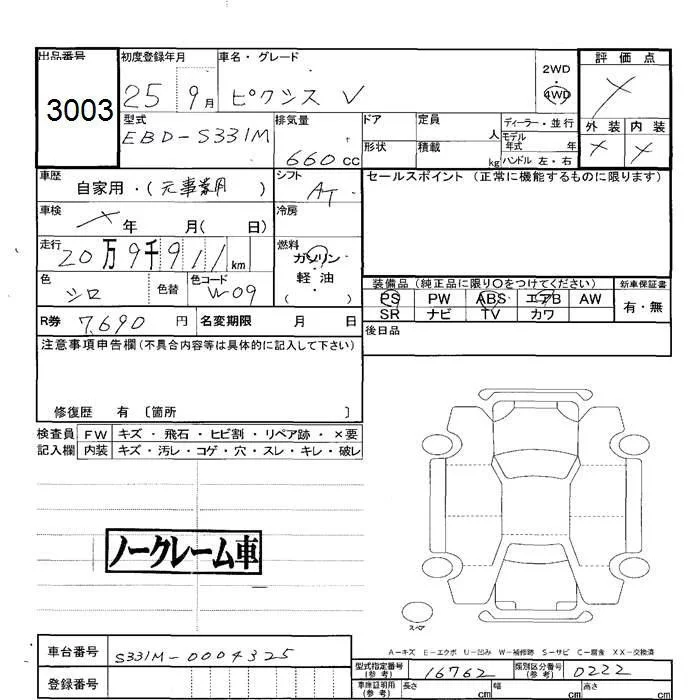 出品番号 初度登録年月 車名・グレード 2WD 評価点
3003 25 9月 ピクシス V 4WD
型式 排気量 ドア 定員 人 ディーラー・並行 外装 内装
EBD-S331M 660cc 形状 積載 kg モデル年式 年 ハンドル 左・右
車歴 自家用・(元事業用) シフト AT セールスポイント (正常に機能するものに限ります)
車検 年 月( 日) 冷房
走行 20万9千911km 燃料 ガソリン
軽油
( )
色 シロ 色替 色コード W-09
装備品 (純正品に限り○をつけてください) 新車保証書
PS PW ABS エアB AW 有・無
SR ナビ TV カワ
R券 7,690円 名変期限 月 日 後日品
注意事項申告欄(不具合内容等は具体的に記入して下さい)
修復歴 有 〔箇所 〕
検査員 FW キズ・飛石・ヒビ割・リペア跡・×要
記入欄 内装 キズ・汚レ・コゲ・穴・スレ・キレ・破レ
ノークレーム車
スペア
A-キズ E-エクボ U-凹み W-補修跡 S-サビ C-腐食 XX-交換済
車台番号 S331M-0004325
型式指定番号(参考) 16762 類別区分番号(参考) 0222
登録番号 車庫証明用(参考) 長さ cm 幅 cm 高さ cm